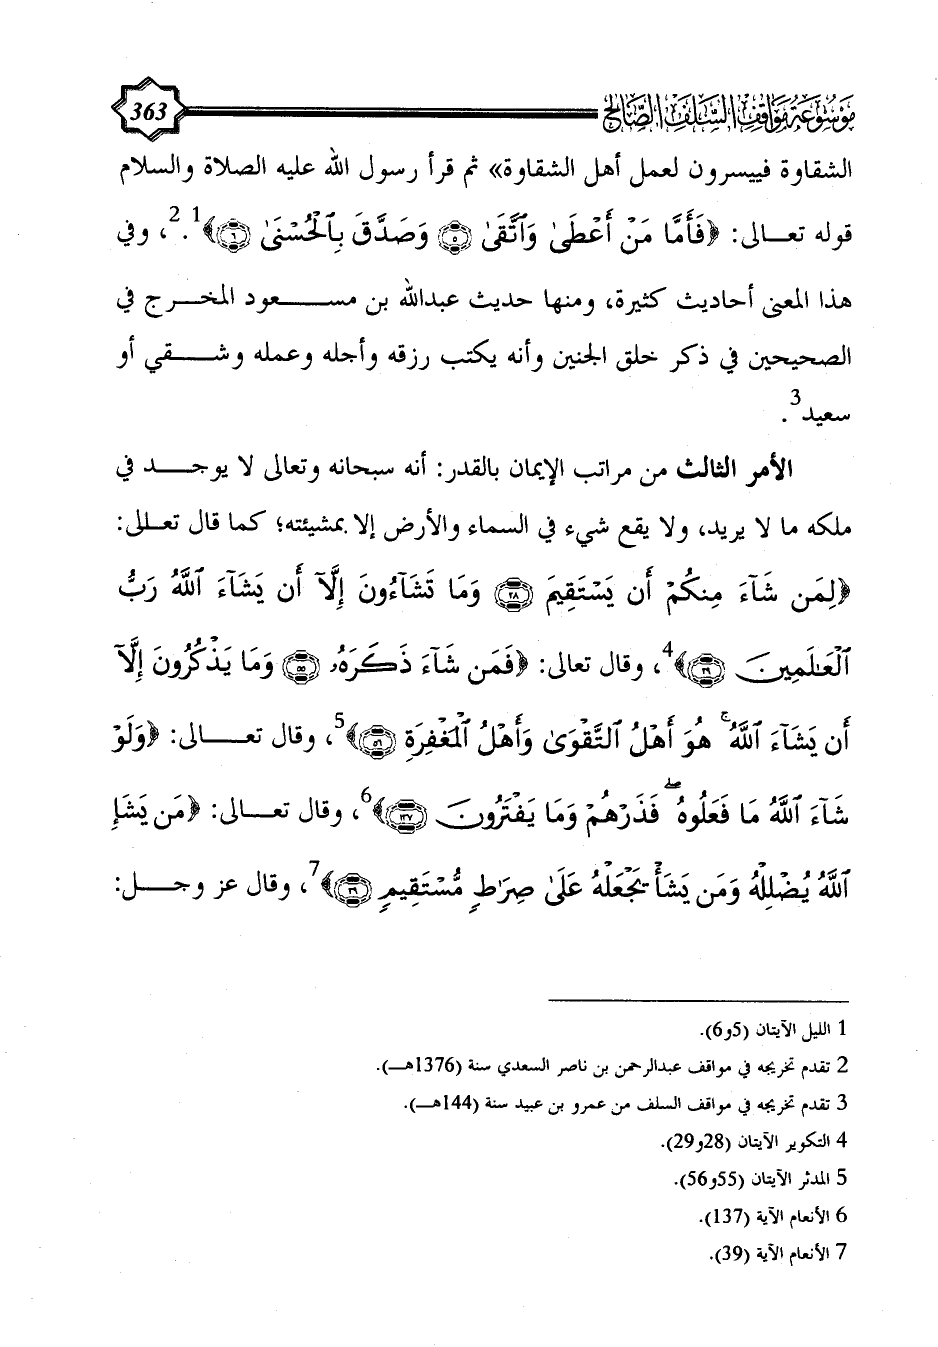 موسوعة مواقف السلف الصالح
363
الشقاوة فييسرون لعمل أهل الشقاوة» ثم قرأ رسول الله عليه الصلاة والسلام
قوله تعـالى: ﴿فَأَمَّا مَنْ أَعْطَىٰ وَٱتَّقَىٰ ۝٥ وَصَدَّقَ بِٱلْحُسْنَىٰ ۝٦﴾1.2، وفي
هذا المعنى أحاديث كثيرة، ومنها حديث عبدالله بن مسـعود المخـرج في
الصحيحين في ذكر خلق الجنين وأنه يكتب رزقه وأجله وعمله وشـقي أو
سعيد3.
الأمر الثالث من مراتب الإيمان بالقدر: أنه سبحانه وتعالى لا يوجـد في
ملكه ما لا يريد، ولا يقع شيء في السماء والأرض إلا بمشيئته؛ كما قال تعـالى:
﴿لِمَن شَآءَ مِنكُمْ أَن يَسْتَقِيمَ ۝٢٨ وَمَا تَشَآءُونَ إِلَّآ أَن يَشَآءَ ٱللَّهُ رَبُّ
ٱلْعَـٰلَمِينَ ۝٢٩﴾4، وقال تعالى: ﴿فَمَن شَآءَ ذَكَرَهُۥ ۝٥٥ وَمَا يَذْكُرُونَ إِلَّآ
أَن يَشَآءَ ٱللَّهُ ۚ هُوَ أَهْلُ ٱلتَّقْوَىٰ وَأَهْلُ ٱلْمَغْفِرَةِ ۝٥٦﴾5، وقال تعـالى: ﴿وَلَوْ
شَآءَ ٱللَّهُ مَا فَعَلُوهُ ۖ فَذَرْهُمْ وَمَا يَفْتَرُونَ ۝١٣٧﴾6، وقال تعـالى: ﴿مَن يَشَإِ
ٱللَّهُ يُضْلِلْهُ وَمَن يَشَأْ يَجْعَلْهُ عَلَىٰ صِرَٰطٍ مُّسْتَقِيمٍ ۝٣٩﴾7، وقال عز وجـل:
1 الليل الآيتان (5و6).
2 تقدم تخريجه في مواقف عبدالرحمن بن ناصر السعدي سنة (1376هـ).
3 تقدم تخريجه في مواقف السلف من عمرو بن عبيد سنة (144هـ).
4 التكوير الآيتان (28و29).
5 المدثر الآيتان (55و56).
6 الأنعام الآية (137).
7 الأنعام الآية (39).